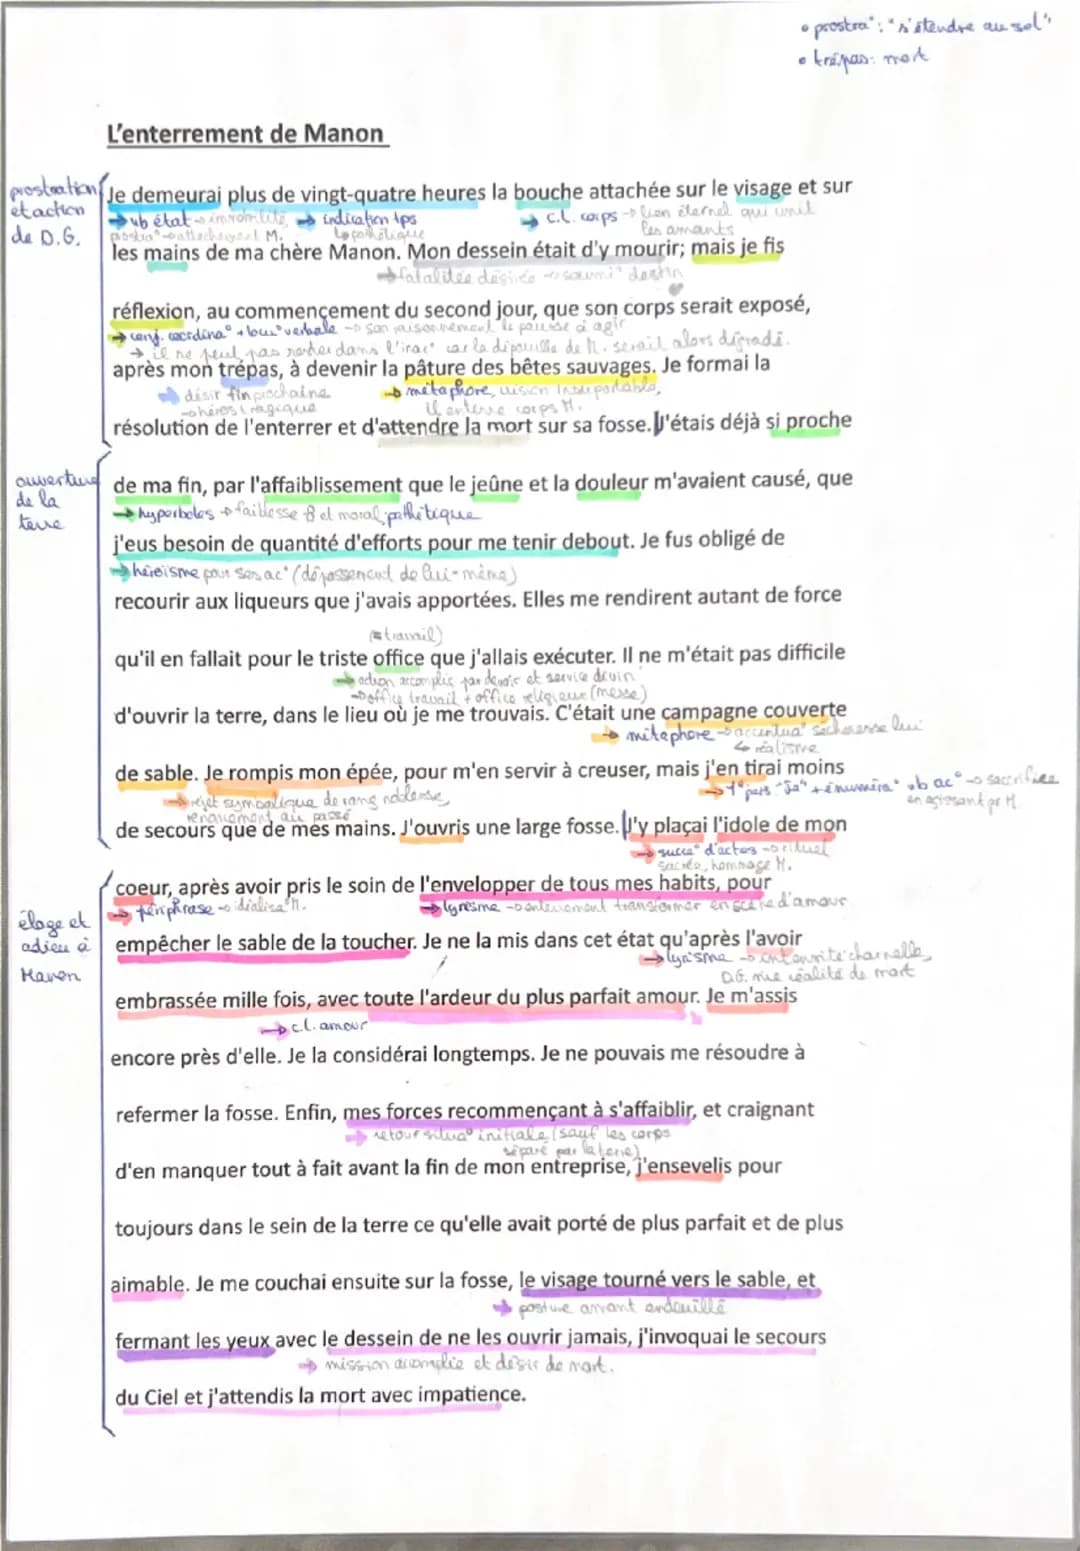 • prostra°: "s'étendre au sol"
• trépas: mort
L'enterrement de Manon
prostration et action de D.G.
Je demeurai plus de vingt-quatre heures la bouche attachée sur le visage et sur
→ vb état → immobilité → indication tps → c.l. corps → lien éternel qui unit les amants
prostra° → attachement M. ↳ pathétique
les mains de ma chère Manon. Mon dessein était d'y mourir; mais je fis
→ fatalitée désirée → soumi° destin
réflexion, au commencement du second jour, que son corps serait exposé,
→ conj. coordina° + locu° verbale → son raisonnement le pousse à agir
→ il ne peut pas rester dans l'inac° car la dépouille de M. serait alors dégradé.
après mon trépas, à devenir la pâture des bêtes sauvages. Je formai la
→ désir fin prochaine → métaphore, vision insuportable,
→ héros tragique il enterre corps M.
résolution de l'enterrer et d'attendre la mort sur sa fosse. J'étais déjà si proche
ouverture de la terre
de ma fin, par l'affaiblissement que le jeûne et la douleur m'avaient causé, que
→ hyperboles → faiblesse et moral; pathétique
j'eus besoin de quantité d'efforts pour me tenir debout. Je fus obligé de
→ héroïsme pour ses ac° (dépassement de lui-même)
recourir aux liqueurs que j'avais apportées. Elles me rendirent autant de force
(= travail)
qu'il en fallait pour le triste office que j'allais exécuter. Il ne m'était pas difficile
→ action accomplie par devoir et service divin
→ office travail + office religieux (messe)
d'ouvrir la terre, dans le lieu où je me trouvais. C'était une campagne couverte
→ métaphore → accentua° sécheresse lieu
↳ réalisme
de sable. Je rompis mon épée, pour m'en servir à creuser, mais j'en tirai moins
→ rejet symbolique de rang noblesse, → 1° pers "Je" + énuméra° vb ac° → sacrifice
renoncement au passé en agissant pr M.
de secours que de mes mains. J'ouvris une large fosse. J'y plaçai l'idole de mon
→ succe° d'actes → rituel
sacrée, hommage M.
éloge et adieu à Manon
coeur, après avoir pris le soin de l'envelopper de tous mes habits, pour
→ périphrase → idéalise M. → lyrisme → enterrement transformer en scène d'amour
empêcher le sable de la toucher. Je ne la mis dans cet état qu'après l'avoir
→ lyrisme → intensité charnelle,
D.G. nie réalité de mort
embrassée mille fois, avec toute l'ardeur du plus parfait amour. Je m'assis
→ c.l. amour
encore près d'elle. Je la considérai longtemps. Je ne pouvais me résoudre à
refermer la fosse. Enfin, mes forces recommençant à s'affaiblir, et craignant
→ retour situa° initiale (sauf les corps
séparé par la terre)
d'en manquer tout à fait avant la fin de mon entreprise, j'ensevelis pour
toujours dans le sein de la terre ce qu'elle avait porté de plus parfait et de plus
aimable. Je me couchai ensuite sur la fosse, le visage tourné vers le sable, et
→ posture amant endeuillé
fermant les yeux avec le dessein de ne les ouvrir jamais, j'invoquai le secours
→ mission accomplie et désir de mort.
du Ciel et j'attendis la mort avec impatience.